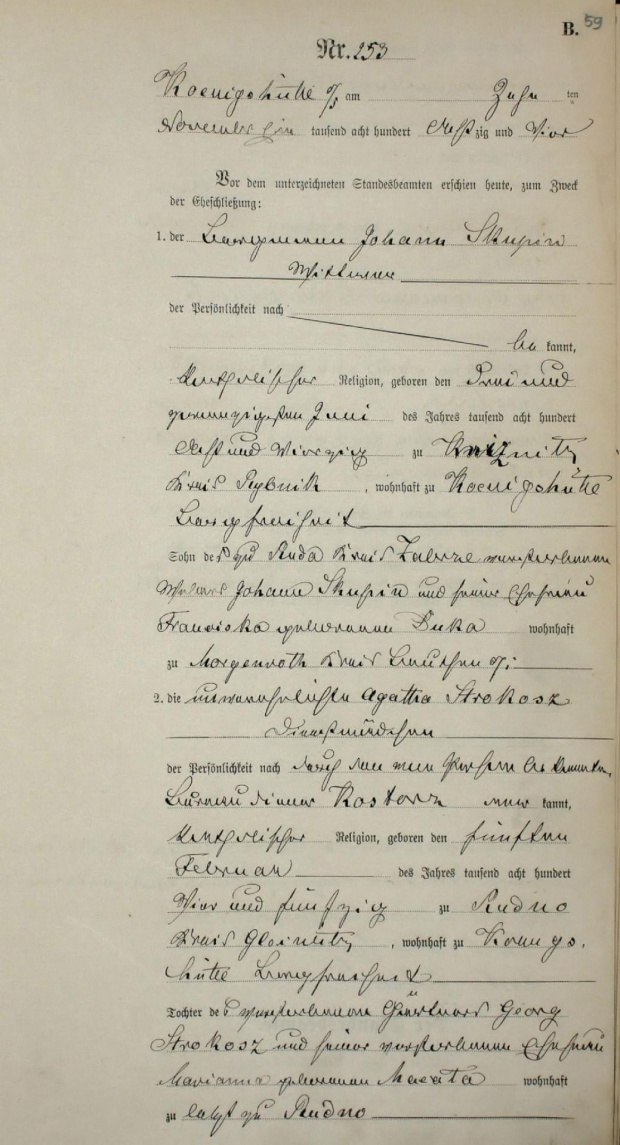 B. 59
Nr. 253
Koenigshütte O/S am Zehn ten
November ein tausend acht hundert Acht zig und Vier
Vor dem unterzeichneten Standesbeamten erschien heute, zum Zweck
der Eheschließung:
1. der Bergmann Johann Skupin
Wittwer
der Persönlichkeit nach
be kannt,
katholischer Religion, geboren den Drei und
zwanzigsten Juni des Jahres tausend acht hundert
Acht und Vierzig zu
Kreis Rybnik, wohnhaft zu Koenigshütte
Bergfreiheit
Sohn des zu Ruda Kreis Zabrze verstorbenen
Johann Skupin und seiner Ehefrau
Franziska geborenen Duka wohnhaft
zu Morgenroth Kreis Beuthen O/S
2. die unverehelichte Agatha Strokosz
Dienstmädchen
der Persönlichkeit nach durch den von Person bekannten
Bureaudiener Kostorz aner kannt,
katholischer Religion, geboren den fünften
Februar des Jahres tausend acht hundert
Vier und fünfzig zu Rudno
Kreis Gleiwitz, wohnhaft zu Koenigs-
hütte Bergfreiheit
Tochter des verstorbenen Gärtners Georg
Strokosz und seiner verstorbenen Ehefrau
Marianna geborenen wohnhaft
zu letzt zu Rudno